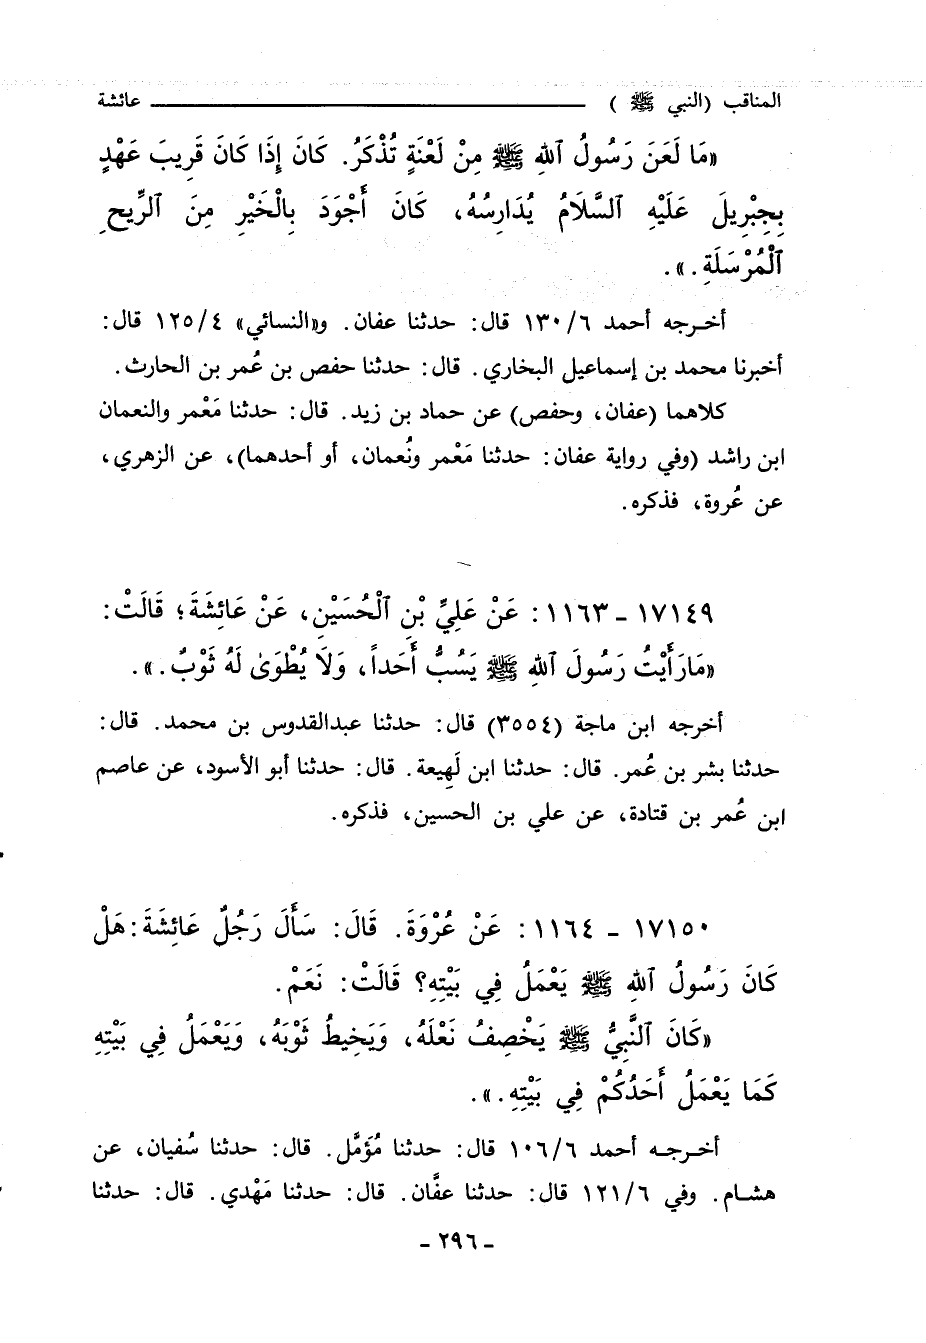 المناقب (النبي ﷺ) ــــــــــــ عائشة
«مَا لَعَنَ رَسُولُ ٱللهِ ﷺ مِنْ لَعْنَةٍ تُذْكَرُ. كَانَ إِذَا كَانَ قَرِيبَ عَهْدٍ
بِجِبْرِيلَ عَلَيْهِ ٱلسَّلَامُ يُدَارِسُهُ، كَانَ أَجْوَدَ بِالْخَيْرِ مِنَ ٱلرِّيحِ
ٱلْمُرْسَلَةِ.».
أخرجه أحمد ١٣٠/٦ قال: حدثنا عفان. و«النسائي» ١٢٥/٤ قال:
أخبرنا محمد بن إسماعيل البخاري. قال: حدثنا حفص بن عُمر بن الحارث.
كلاهما (عفان، وحفص) عن حماد بن زيد. قال: حدثنا مَعْمر والنعمان
ابن راشد (وفي رواية عفان: حدثنا مَعْمر ونُعمان، أو أحدهما)، عن الزهري،
عن عُروة، فذكره.
١٧١٤٩ - ١١٦٣: عَنْ عَلِيِّ بْنِ ٱلْحُسَيْنِ، عَنْ عَائِشَةَ؛ قَالَتْ:
«مَارَأَيْتُ رَسُولَ ٱللهِ ﷺ يَسُبُّ أَحَداً، وَلَا يُطْوَىٰ لَهُ ثَوْبٌ.».
أخرجه ابن ماجة (٣٥٥٤) قال: حدثنا عبدالقدوس بن محمد. قال:
حدثنا بشر بن عُمر. قال: حدثنا ابن لَهِيعة. قال: حدثنا أبو الأسود، عن عاصم
ابن عُمر بن قتادة، عن علي بن الحسين، فذكره.
١٧١٥٠ - ١١٦٤: عَنْ عُرْوَةَ. قَالَ: سَأَلَ رَجُلٌ عَائِشَةَ: هَلْ
كَانَ رَسُولُ ٱللهِ ﷺ يَعْمَلُ فِي بَيْتِهِ؟ قَالَتْ: نَعَمْ.
«كَانَ ٱلنَّبِيُّ ﷺ يَخْصِفُ نَعْلَهُ، وَيَخِيطُ ثَوْبَهُ، وَيَعْمَلُ فِي بَيْتِهِ
كَمَا يَعْمَلُ أَحَدُكُمْ فِي بَيْتِهِ.».
أخرجه أحمد ١٠٦/٦ قال: حدثنا مُؤَمَّل. قال: حدثنا سُفيان، عن
هشام. وفي ١٢١/٦ قال: حدثنا عفَّان. قال: حدثنا مَهْدي. قال: حدثنا
- ٢٩٦ -